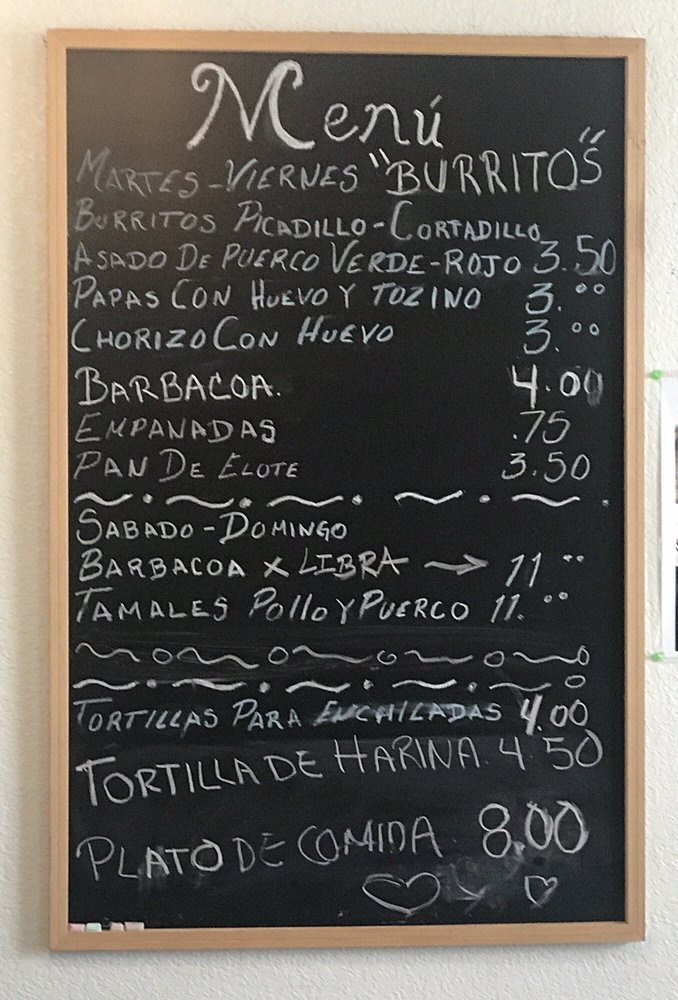 Menú
MARTES-VIERNES "BURRITOS"
BURRITOS PICADILLO-CORTADILLO
ASADO DE PUERCO VERDE-ROJO 3.50
PAPAS CON HUEVO Y TOZINO 3.00
CHORIZO CON HUEVO 3.00
BARBACOA. 4.00
EMPANADAS .75
PAN DE ELOTE 3.50
SABADO-DOMINGO
BARBACOA X LIBRA → 11.00
TAMALES POLLO Y PUERCO 11.00
TORTILLAS PARA ENCHILADAS 4.00
TORTILLA DE HARINA. 4.50
PLATO DE COMIDA. 8.00